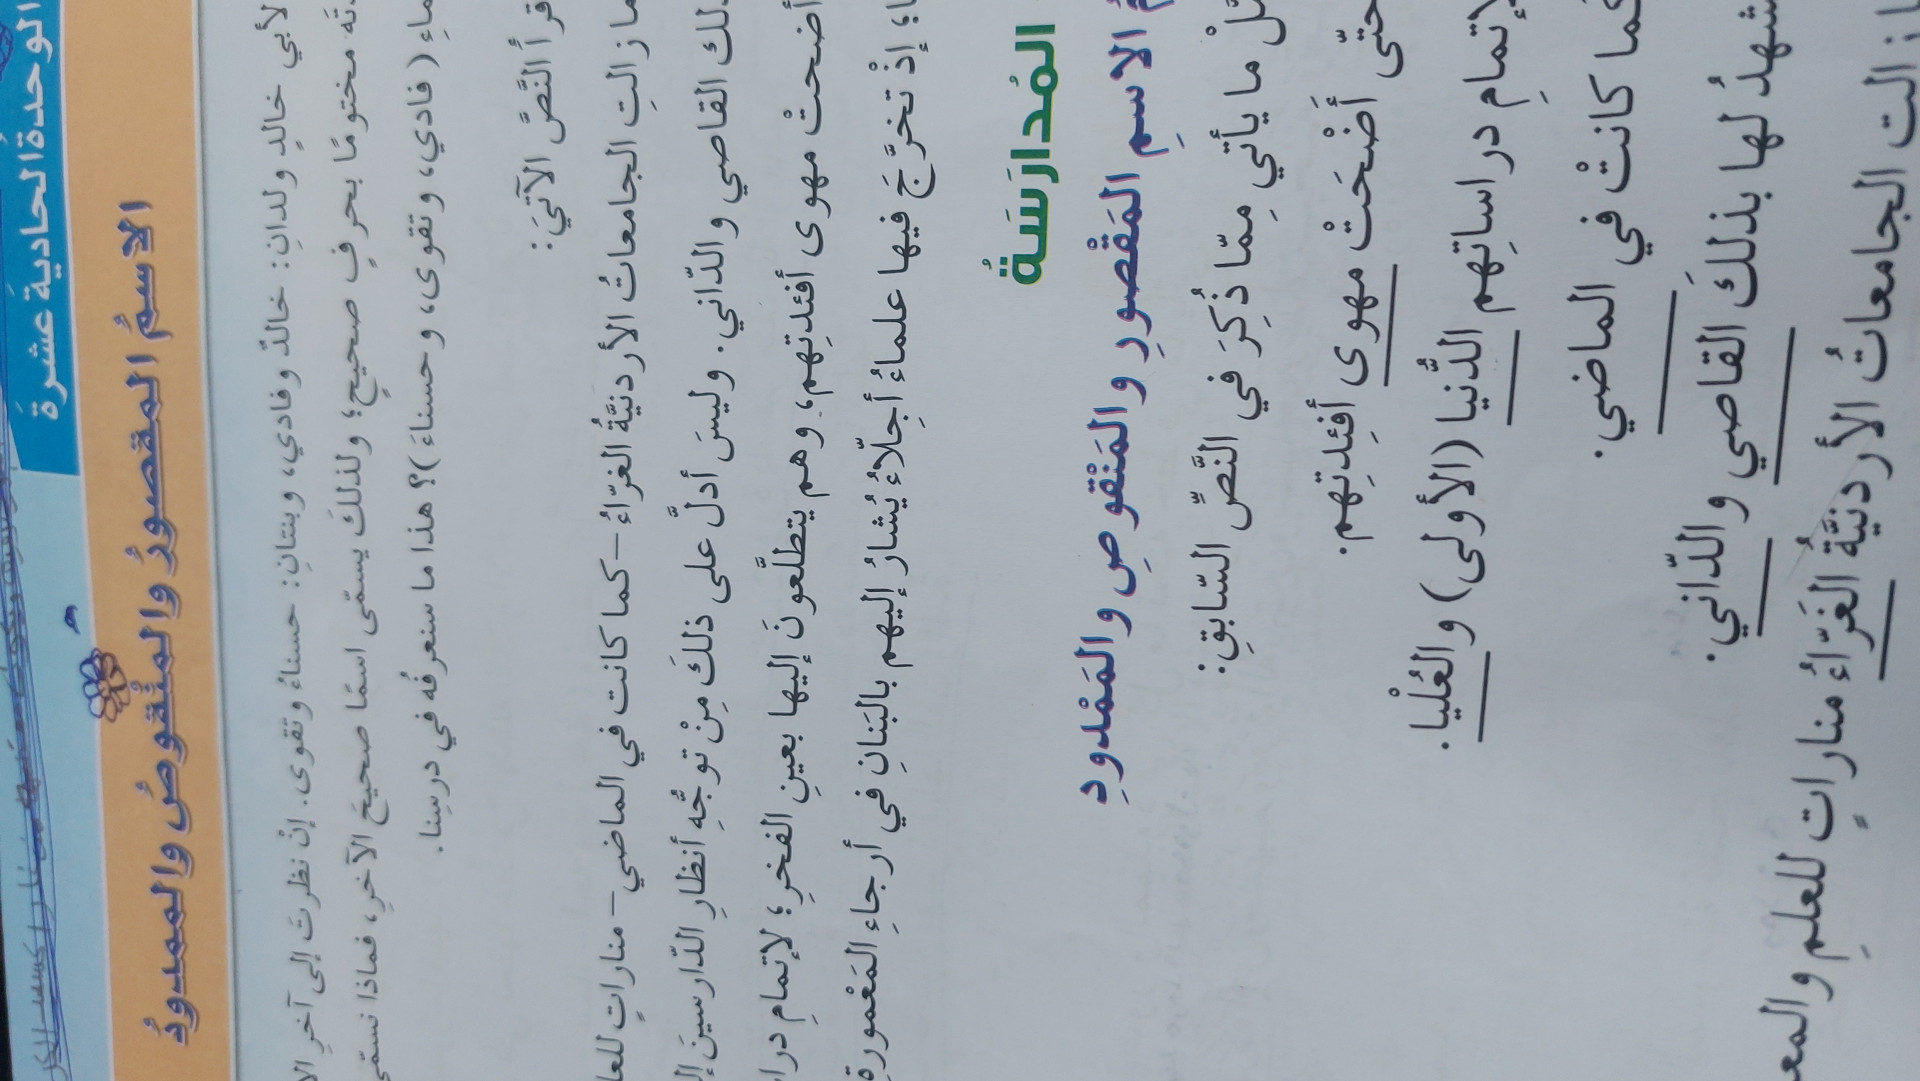 الوحدة الحادية عشرة
الاسمُ المقصورُ والمنْقوصُ والممدودُ
لأبي خالدٍ ولدانِ: خالدٌ وفادي، وبنتانِ: حسناءُ وتقوى. إنْ نظرتَ إلى آخرِ
دتَه مختومًا بحرفٍ صحيحٍ؛ ولذلكَ يسمّى اسمًا صحيحَ الآخرِ، فماذا نسمّي
(فادي، وتقوى، وحسناءَ)؟ هذا ما سنعرفُه في درسِنا.
النَّصَّ الآتيَ:
ما زالتِ الجامعاتُ الأردنيَّةُ الغرّاءُ -كما كانت في الماضي- مناراتٍ
القاصي والدّاني. وليسَ أدلَّ على ذلكَ مِنْ توجُّهِ أنظارِ الدّارسينَ
أضحتْ مهوى أفئدتِهم، وهم يتطلَّعونَ إليها بعينِ الفخرِ؛ لإتمامِ
إذْ تخرَّجَ فيها علماءُ أجِلّاءُ يُشارُ إليهم بالبَنانِ في أرجاءِ المَعْمورةِ
المُدارَسَةُ
الاسمِ المَقْصورِ والمَنْقوصِ والمَمْدودِ
ما يأتي مِمّا ذُكِرَ في النَّصِّ السّابقِ:
حتّى أَضْحَتْ مهوى أفئِدتِهم.
لإتمامِ دراساتِهم الدُّنيا (الأولى) والعُلْيا.
كما كانتْ في الماضي.
شهدُ لها بذلكَ القاصي والدّاني.
زالت الجامعاتُ الأردنيَّةُ الغَرّاءُ مناراتٍ للعلمِ